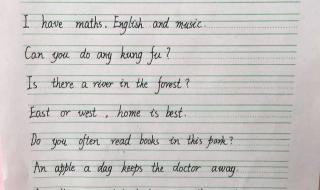 I have maths, English and music.
Can you do any kung fu?
Is there a river in the forest?
East or west, home is best.
Do you often read books in this park?
An apple a day keeps the doctor away.